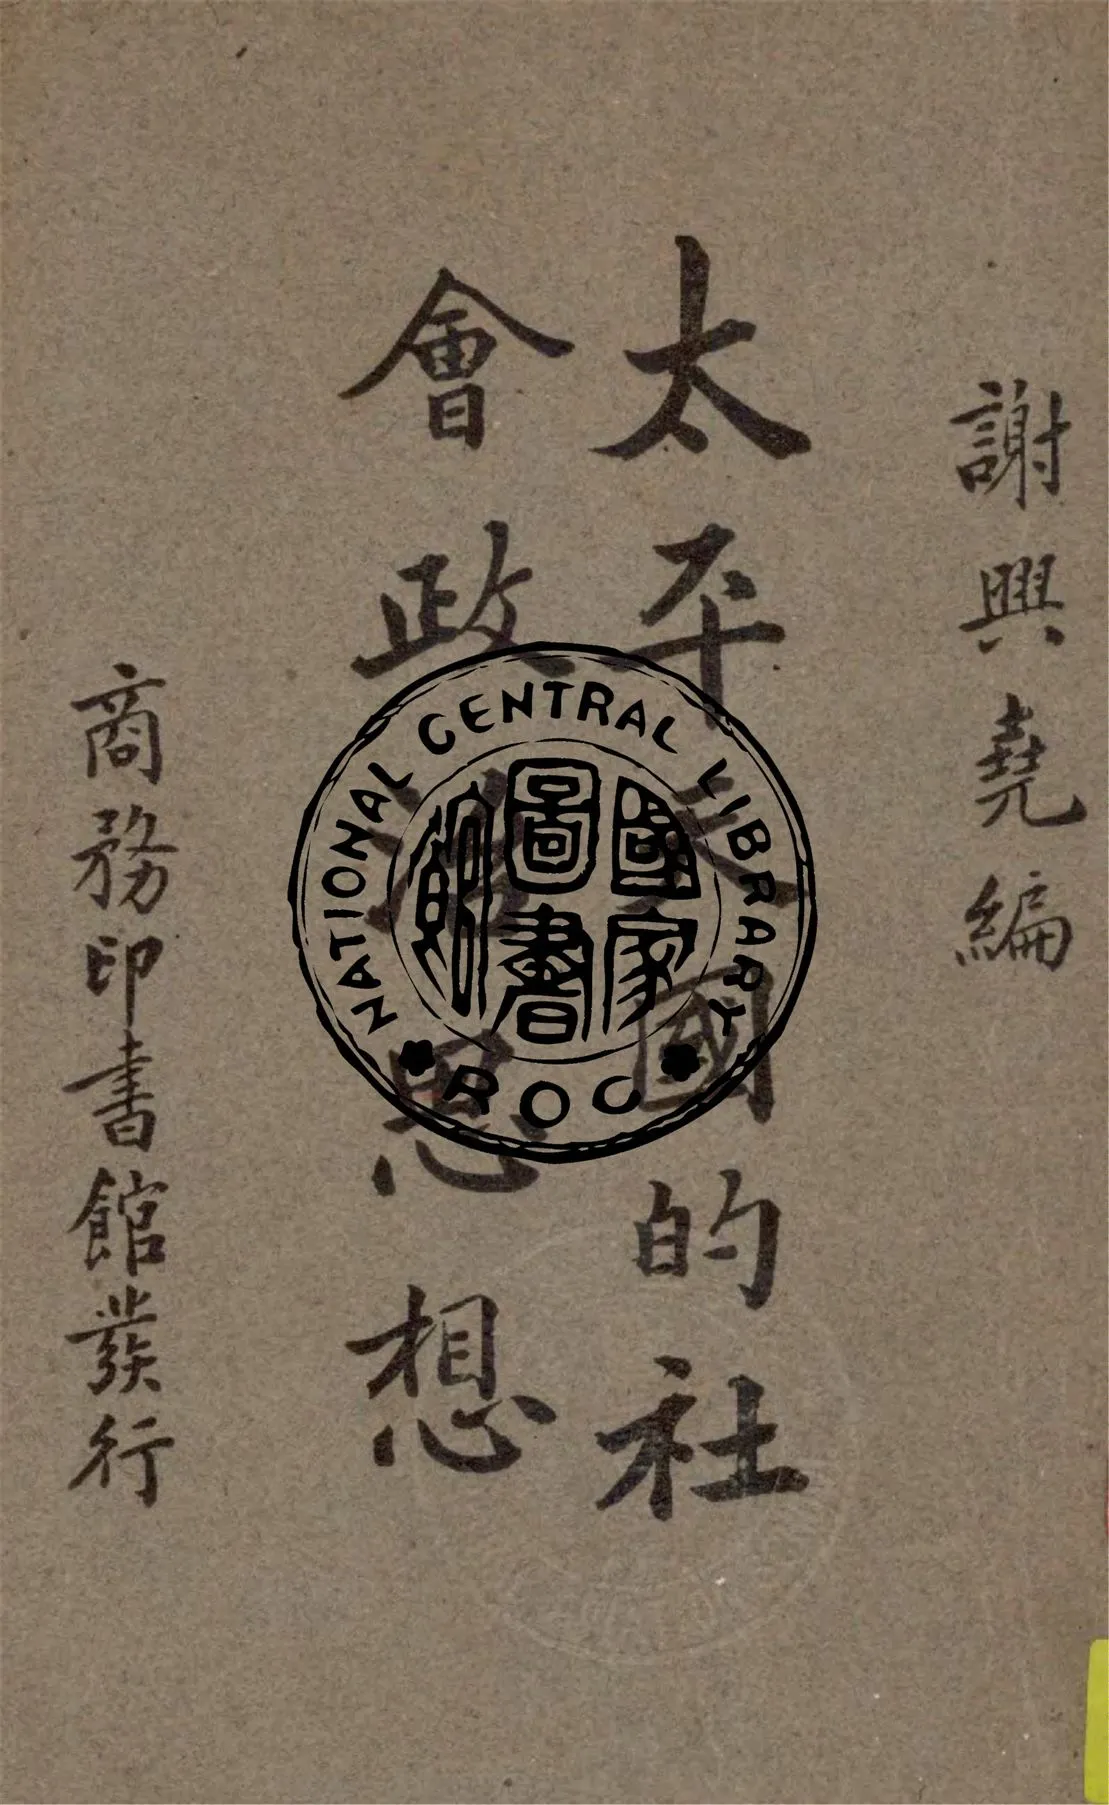 謝興堯編
太平天國的社
會政治思想
商務印書館發行
NATIONAL CENTRAL LIBRARY
國家圖書館
ROC